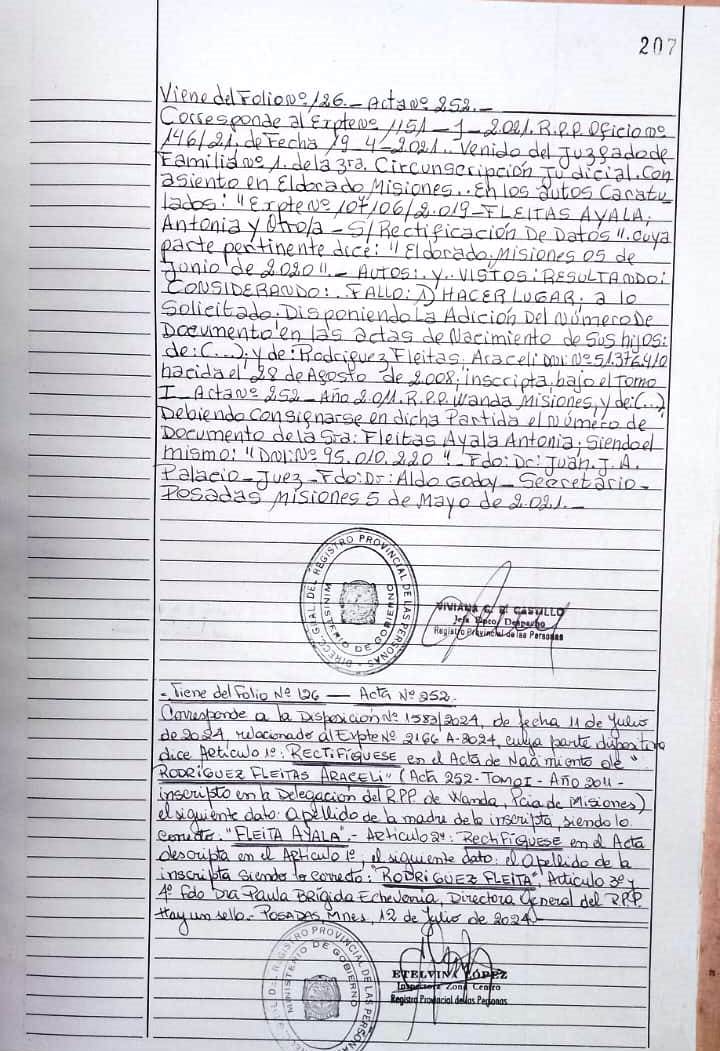 207
Viene del Folio Nº 126.- Acta Nº 252.-
Corresponde al Expte Nº 1151-J-2021. R.P.P. Oficio Nº
146/21, de Fecha 19-4-2021.- Venido del Juzgado de
Familia Nº 1. de la 3ra, Circunscripción Judicial. Con
asiento en Eldorado Misiones.. En los autos Caratu
lados: "Expte Nº 107106/2.019-FLEITAS AYALA;
Antonia y Otro/a - S/Rectificación De Datos". cuya
parte pertinente dice: "Eldorado, Misiones 05 de
Junio de 2020".- AUTOS: y.. VISTOS: RESULTANDO:
CONSIDERANDO:.. FALLO: I) HACER LUGAR. a lo
Solicitado. Disponiendo La Adición Del Número De
Documento en las actas de Nacimiento de Sus hijos:
de: (...); y de: Rodriguez Fleitas Araceli: DNI: Nº 51.376.410
nacida el 28 de Agosto de 2008; inscripta, bajo el Tomo
I - Acta Nº 252 - Año 2.011. R.P.P. Wanda Misiones, y de: (...),
Debiendo Consignarse en dicha Partida el Número de
Documento de la Sra: Fleitas Ayala Antonia; Siendo el
mismo: "DNI: Nº 95.010.220". Fdo: Dr: Juan. J. A.
Palacio - Juez - Fdo: Dr: Aldo Godoy - Secretario -
Posadas Misiones 5 de Mayo de 2.021.-
DIRECC. GRAL. DEL REGISTRO PROVINCIAL DE LAS PERSONAS
MINISTERIO DE GOBIERNO
VIVIANA G. CASTILLO
Jefa Dpto. Despacho
Registro Provincial de las Personas
- Viene del Folio Nº 126 — Acta Nº 252.
Corresponde a la Disposición Nº 1583/2024, de fecha 11 de Julio
de 2024, relacionado al Expte Nº 2166 A-2024, cuya parte dispositiva
dice Artículo 1º: RECTIFÍQUESE en el Acta de Nacimiento de "
RODRIGUEZ FLEITAS ARACELI" (Acta 252 - Tomo I - Año 2011 -
inscripto en la Delegación del R.P.P. de Wanda, Pcia de Misiones)
el siguiente dato: apellido de la madre de la inscripta, siendo lo
correcto: "FLEITA AYALA".- Artículo 2º: Rectifíquese en el Acta
descripta en el Artículo 1º, el siguiente dato: el apellido de la
inscripta siendo lo correcto: "RODRIGUEZ FLEITA" Artículo 3º y
4º Fdo Dra Paula Brígida Echeverria, Directora General del R.P.P.
Hay un sello.- Posadas, Mnes, 12 de Julio de 2024.-
REGISTRO PROVINCIAL DE LAS PERSONAS
MINISTERIO DE GOBIERNO
ETELVINA LOPEZ
Inspectora Zona Centro
Registro Provincial de las Personas